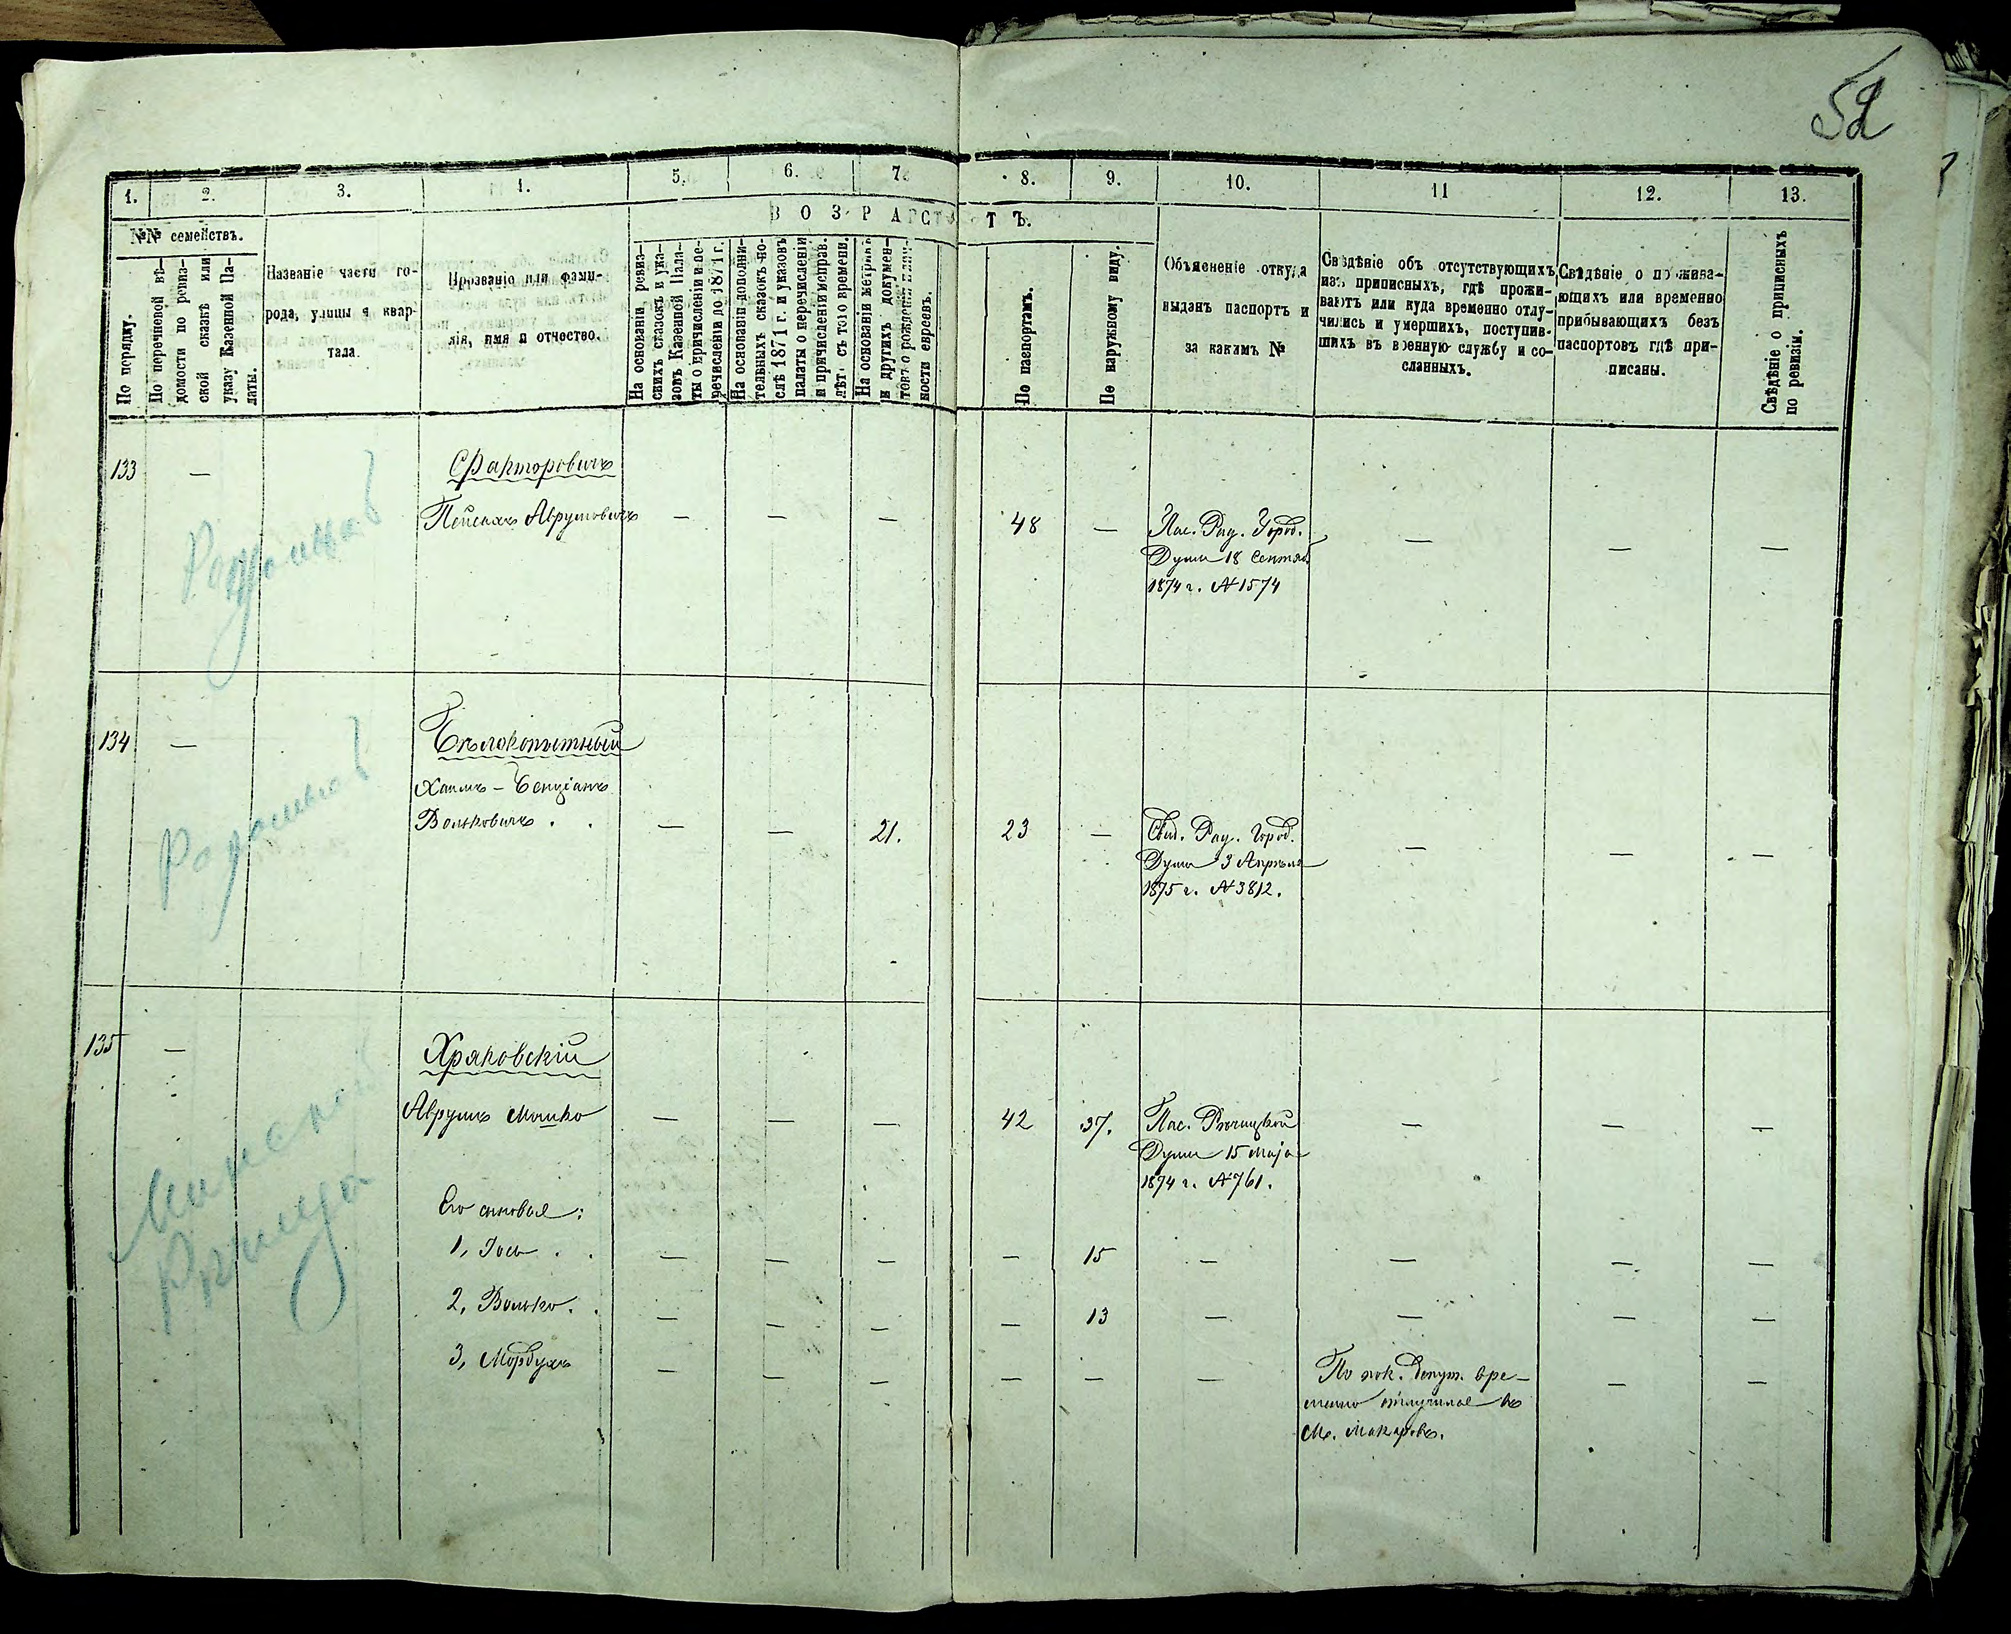 52
1. 2. 3. 4. 5. 6. 7. 8. 9. 10. 11 12. 13.
№№ семействъ.
ВОЗРАСТЪ.
По порядку.
По перечневой вѣ-
домости по ревиз-
ской сказкѣ или
указу Казенной Па-
латы.
Названіе части го-
рода, улицы и квар-
тала.
Прозваніе или фами-
лія, имя и отчество.
На основаніи ревиз-
скихъ сказокъ и ука-
зовъ Казенной Пала-
ты о причисленіи и пе-
речисленіи до 1871 г.
На основаніи дополни-
тельныхъ сказокъ по-
слѣ 1871 г. и указовъ
палаты о перечисленіи
и причисленіи исправ.
лѣт. съ того времени.
На основаніи метрикъ
и другихъ докумен-
товъ о рожденіи
ности евреевъ.
По паспортамъ.
По наружному виду.
Объясненіе откуда
выданъ паспортъ и
за какимъ №
Свѣдѣніе объ отсутствующихъ
изъ приписныхъ, гдѣ прожи-
ваютъ или куда временно отлу-
чились и умершихъ, поступив-
шихъ въ военную службу и со-
сланныхъ.
Свѣдѣніе о прожива-
ющихъ или временно
прибывающихъ безъ
паспортовъ гдѣ при-
писаны.
Свѣдѣніе о приписныхъ
по ревизіи.
133 — Факторовичъ
Пейсахъ Аврумовичъ — — — 48 — Пас. Рад. Город. — — —
Думы 18 Сентяб.
1874 г. № 1574
Радомысл
134 — Бѣлокопытный
Хаимъ - Бенціанъ
Вольковичъ . . — — 21. 23 — Свид. Рад. Город. — — —
Думы 3 Апрѣля
1875 г. № 3812.
Радомысл
135 — Хряковскій
Аврумъ Мошко — — — 42 37. Пас. Рѣчицкой — — —
Думы 15 Маja
1874 г. № 761.
Минской
Рѣчица
Его сыновья:
1, Іось . . — — — — 15 — — — —
2, Волько. . — — — — 13 — — — —
3, Мордухъ — — — — — — По пок. Депут. вре- — —
менно отлучился въ
М. Макаровъ.